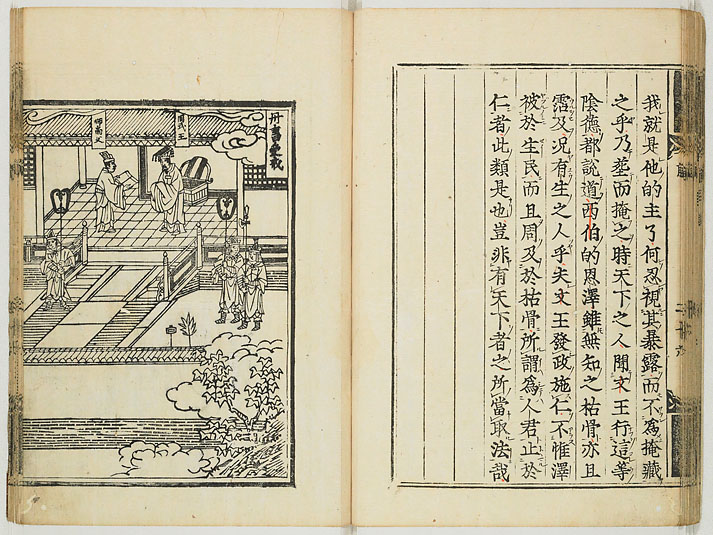 我就是他的主了何忍視其暴露而不為掩藏
之乎乃塟而掩之時天下之人聞文王行這等
陰德都說道西伯的恩澤雖無知之枯骨亦且
霑及況有生之人乎夫文王發政施仁不惟澤
被於生民而且周及於枯骨所謂為人君止於
仁者此類是也豈非有天下者之所當取法哉
丹書受戒
周武王
師尚父